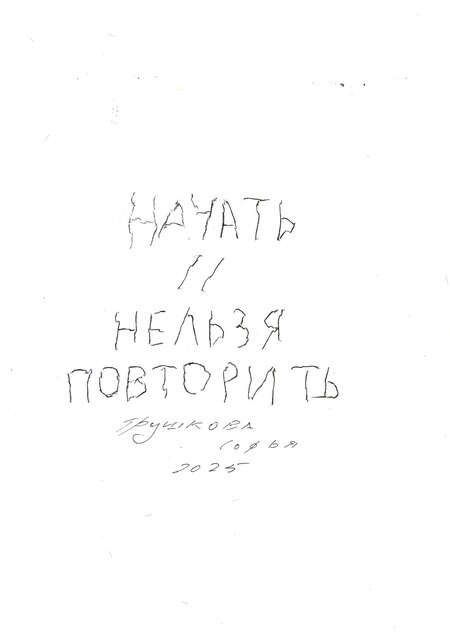 НАЧАТЬ
//
НЕЛЬЗЯ
ПОВТОРИТЬ
ТРУШКОВА
СОФЬЯ
2025